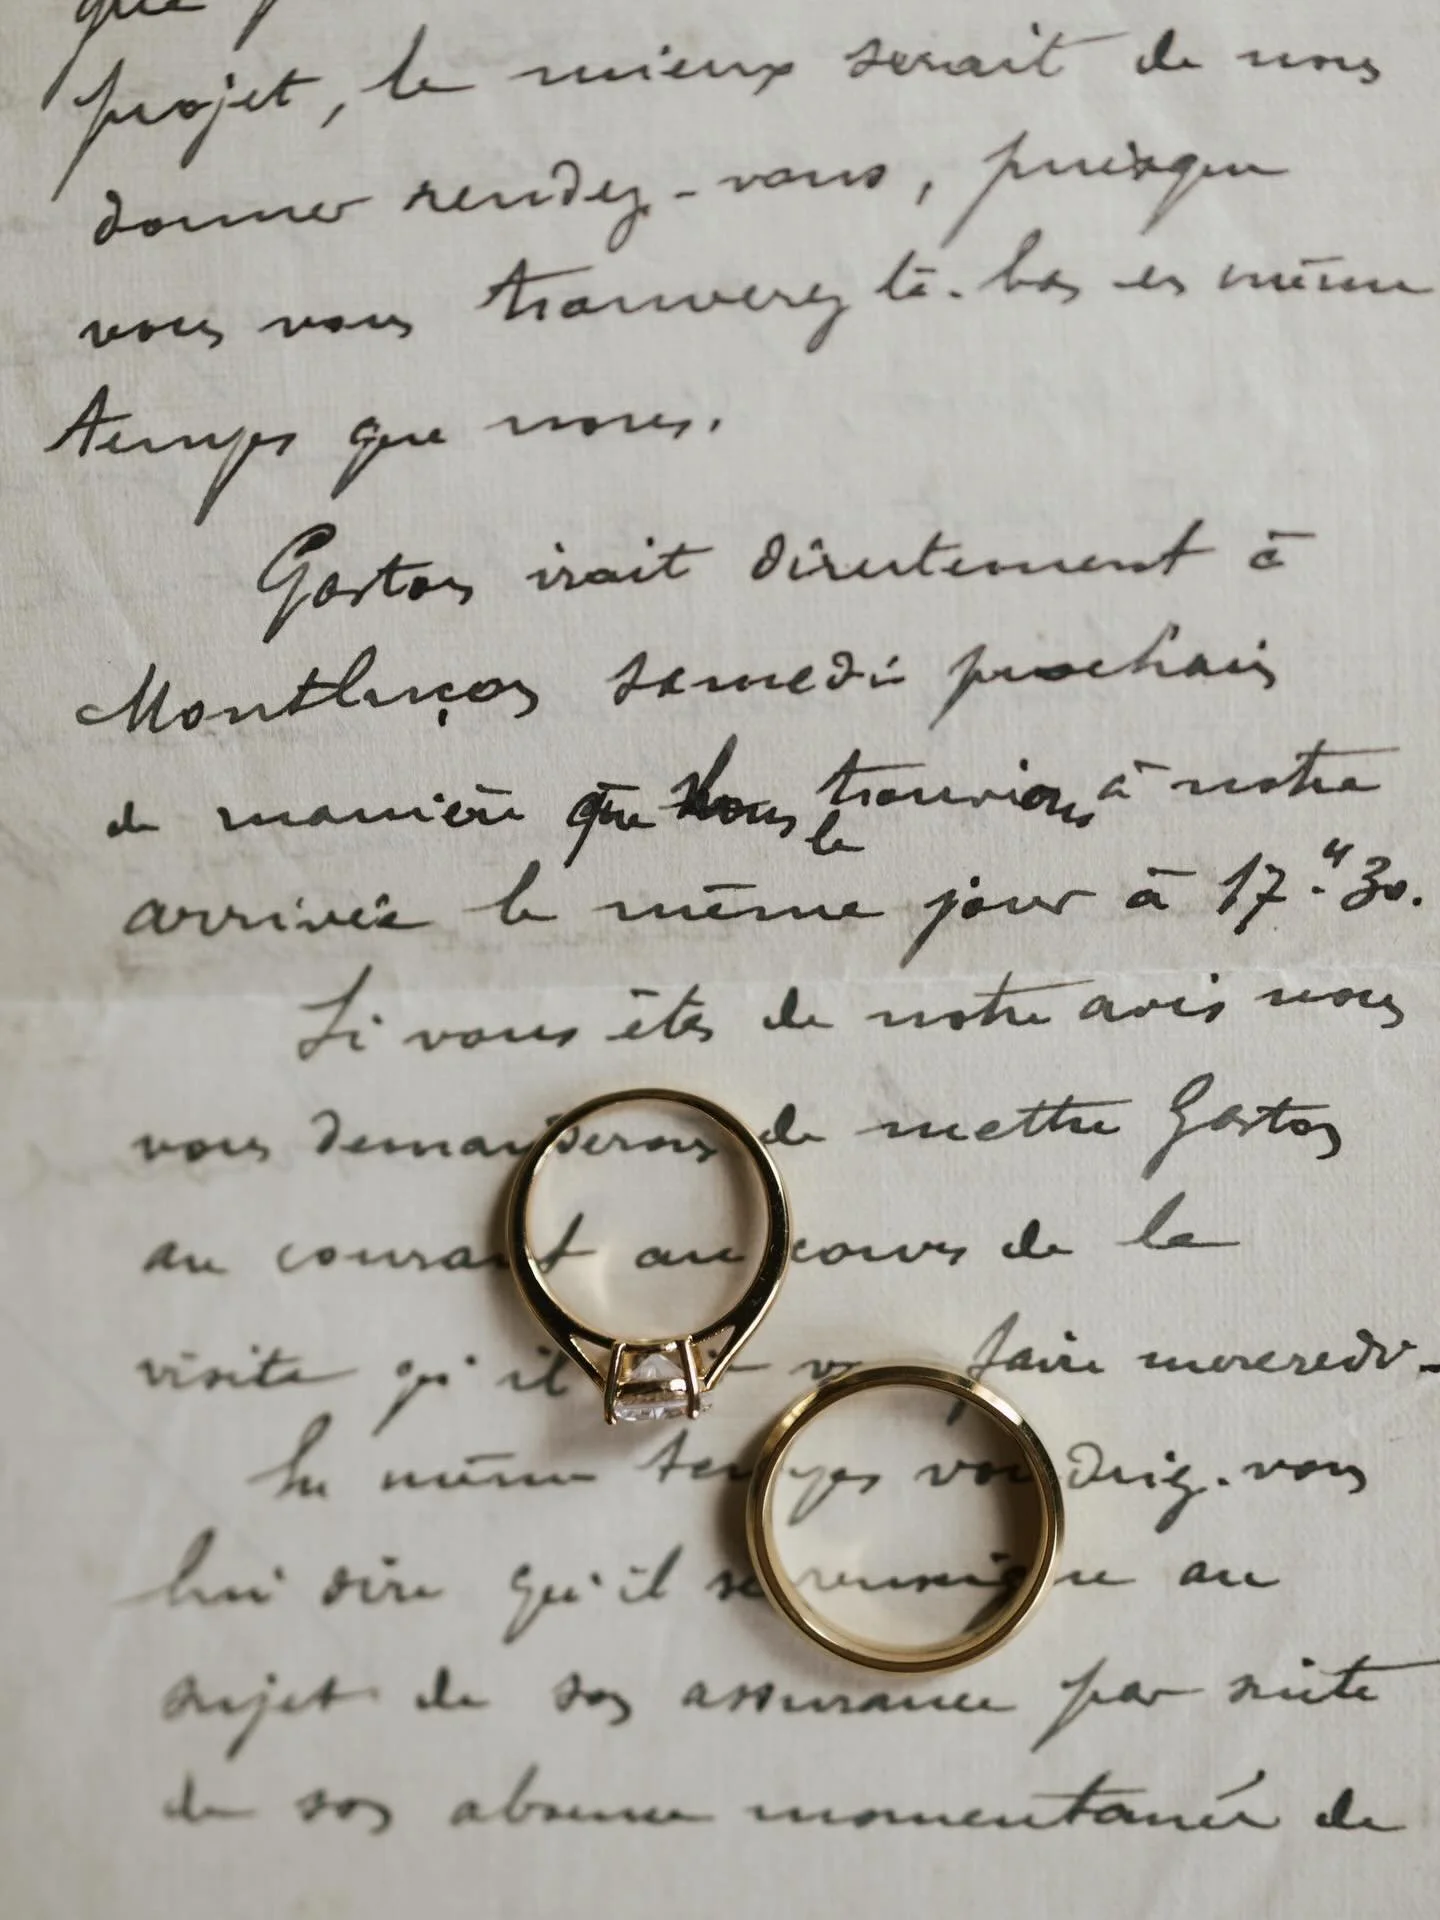 que
projet, le mieux serait de nous
donner rendez-vous, puisque
vous vous trouverez là-bas en même
temps que nous.
Gaston irait directement à
Montluçon samedi prochain
de manière que nous le trouvions à notre
arrivée le même jour à 17.H 30.
Si vous êtes de notre avis nous
vous demanderons de mettre Gaston
au courant au cours de la
visite qu'il faire mercredi-
En même temps voudriez-vous
lui dire qu'il se renseigne au
sujet de son assurance par suite
de son absence momentanée de